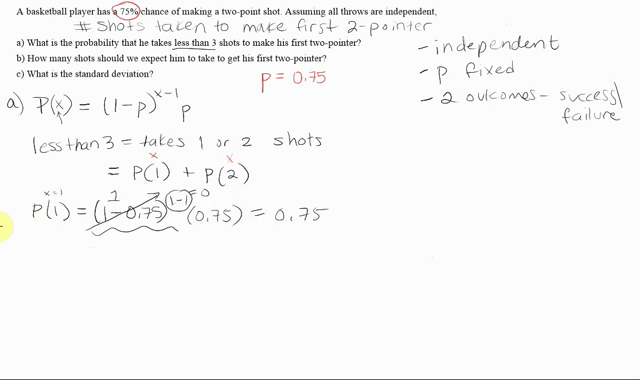 A basketball player has a 75% chance of making a two-point shot. Assuming all throws are independent,
# shots taken to make first 2-pointer
a) What is the probability that he takes less than 3 shots to make his first two-pointer?
b) How many shots should we expect him to take to get his first two-pointer?
c) What is the standard deviation?
p = 0.75
- independent
- p fixed
- 2 outcomes - success/
failure
a) P(x) = (1-p)^{x-1} p
less than 3 = takes 1 or 2 shots
x x
= P(1) + P(2)
x=1 1 =0
P(1) = (1-0.75)^{1-1} (0.75) = 0.75